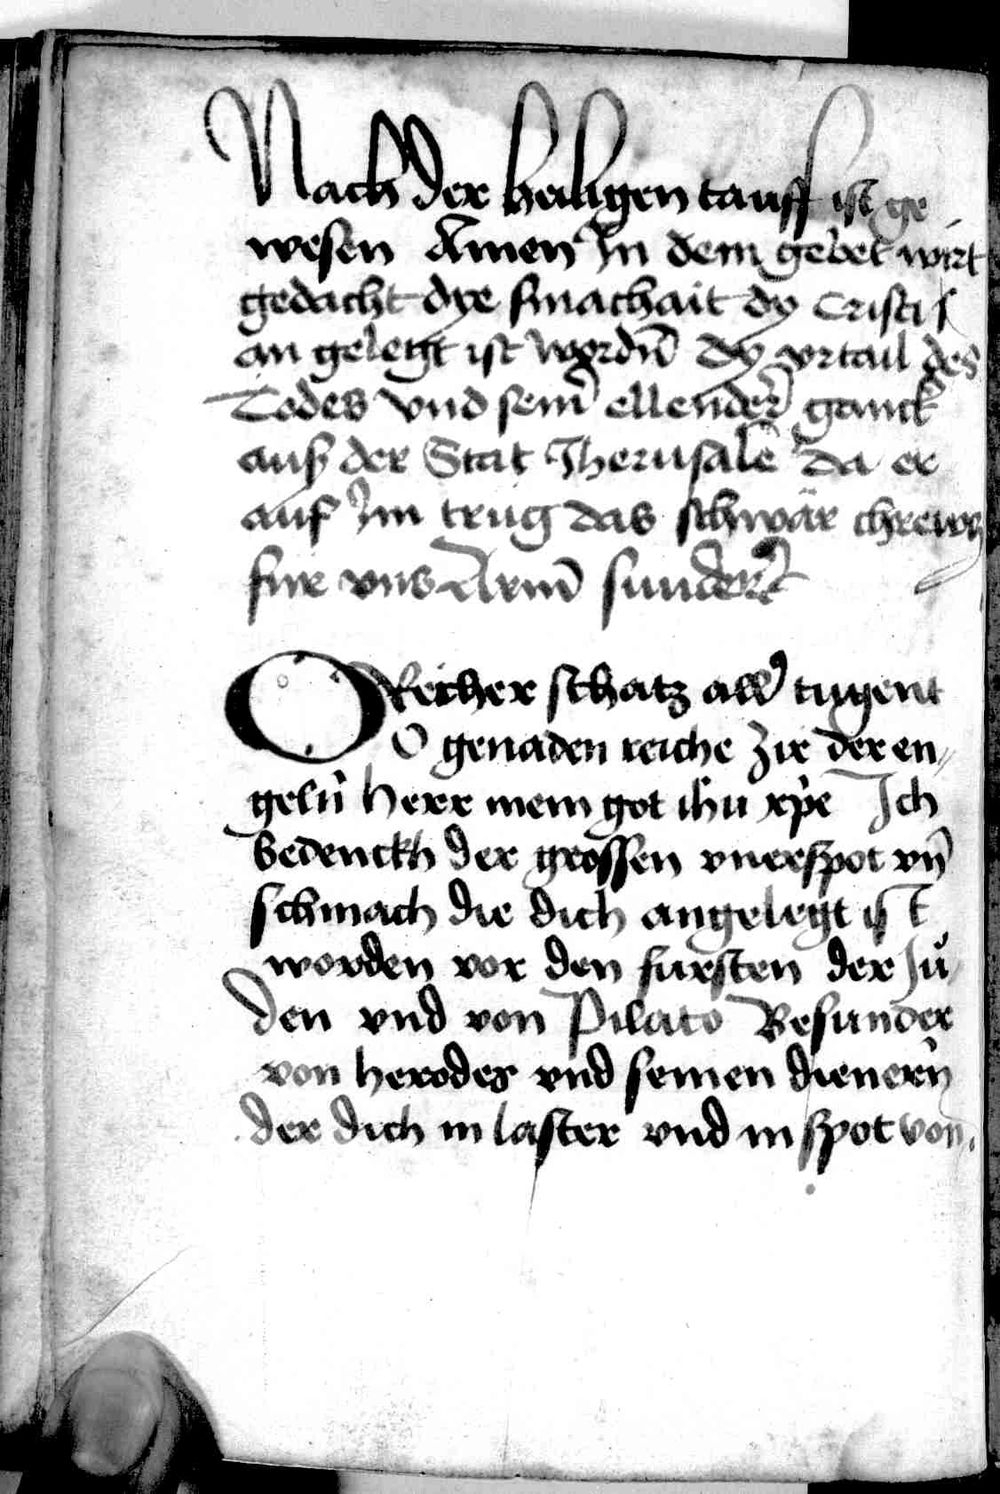 Nach der heiligen tauff ist ge
wesen Amen In dem gebet wirt
gedacht dye smachait dy Cristi
an gelegt ist wordn̄ Dy vrtail des
Todes vnd sein̄ ellender ganck
auß der Stat Jherusalē da er
auf Im trug das schwär chrewcz
fur vns Arm̄ sunder
O Reicher schatz aller tugent
O genaden reiche zir der en„
geln̄ herr mein got ihu xp̄e Ich
bedenckh der grossen vnerspot vn̄
schmach die dich angelegt ist
worden vor den fursten der Ju„
den vnd von Pilato Besunder
von herodes vnd seinen dienern̄
der dich in laster vnd in spot von